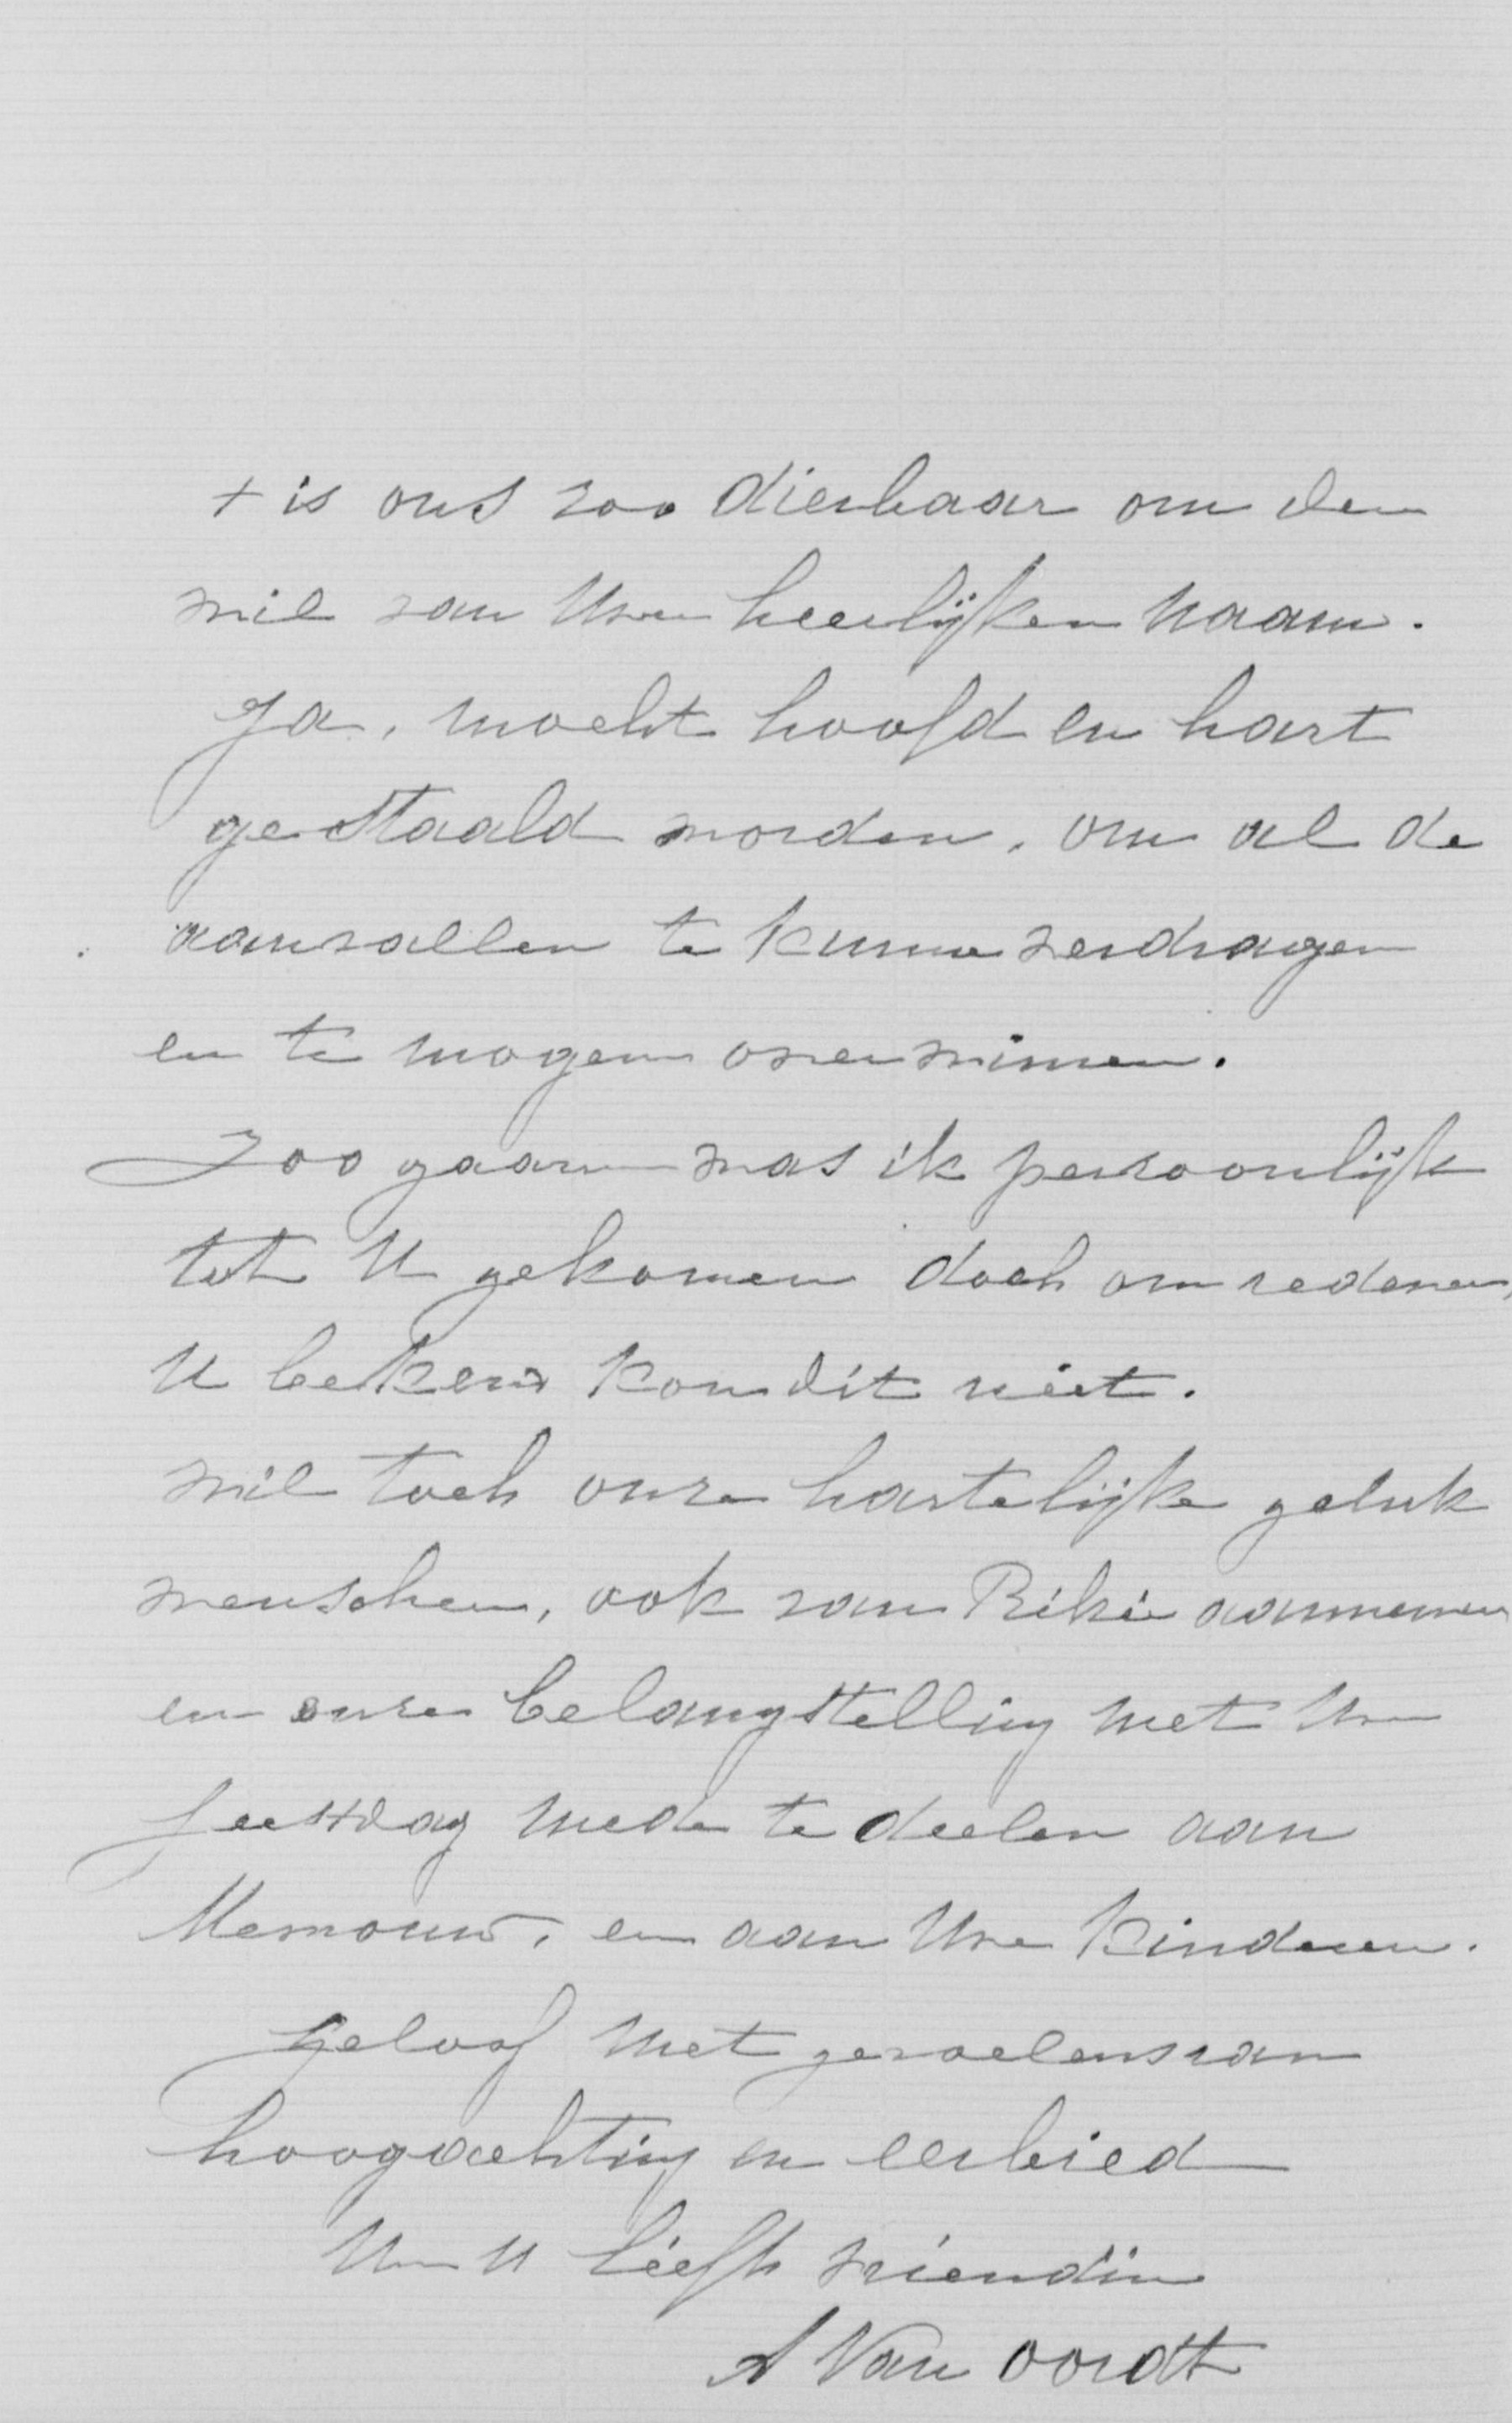 t is ons zoo dierbaar om den
wil van Uwen heerlijken Naam.
Ja, mocht hoofd en hart
gestaald worden, om al de
aanvallen te kunnen verdragen
en te mogen overwinnen.
Zoo gaarne was ik persoonlijk
tot U gekomen doch om redenen,
U bekend kon dit niet.
Wil toch onze hartelijke geluk
wenschen, ook van Rikie aannemen
en onze belangstelling met Uw
feestdag mede te deelen aan
Mevrouw, en aan Uwe Kinderen.
Geloof met gevoelens van
hoogachting en eerbied
Uw U liefh vriendin
A Van Oordt